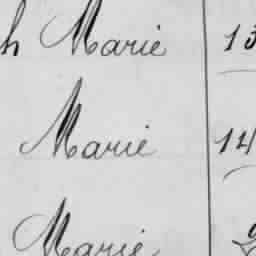 h Marie 13
Marie 14
Marie